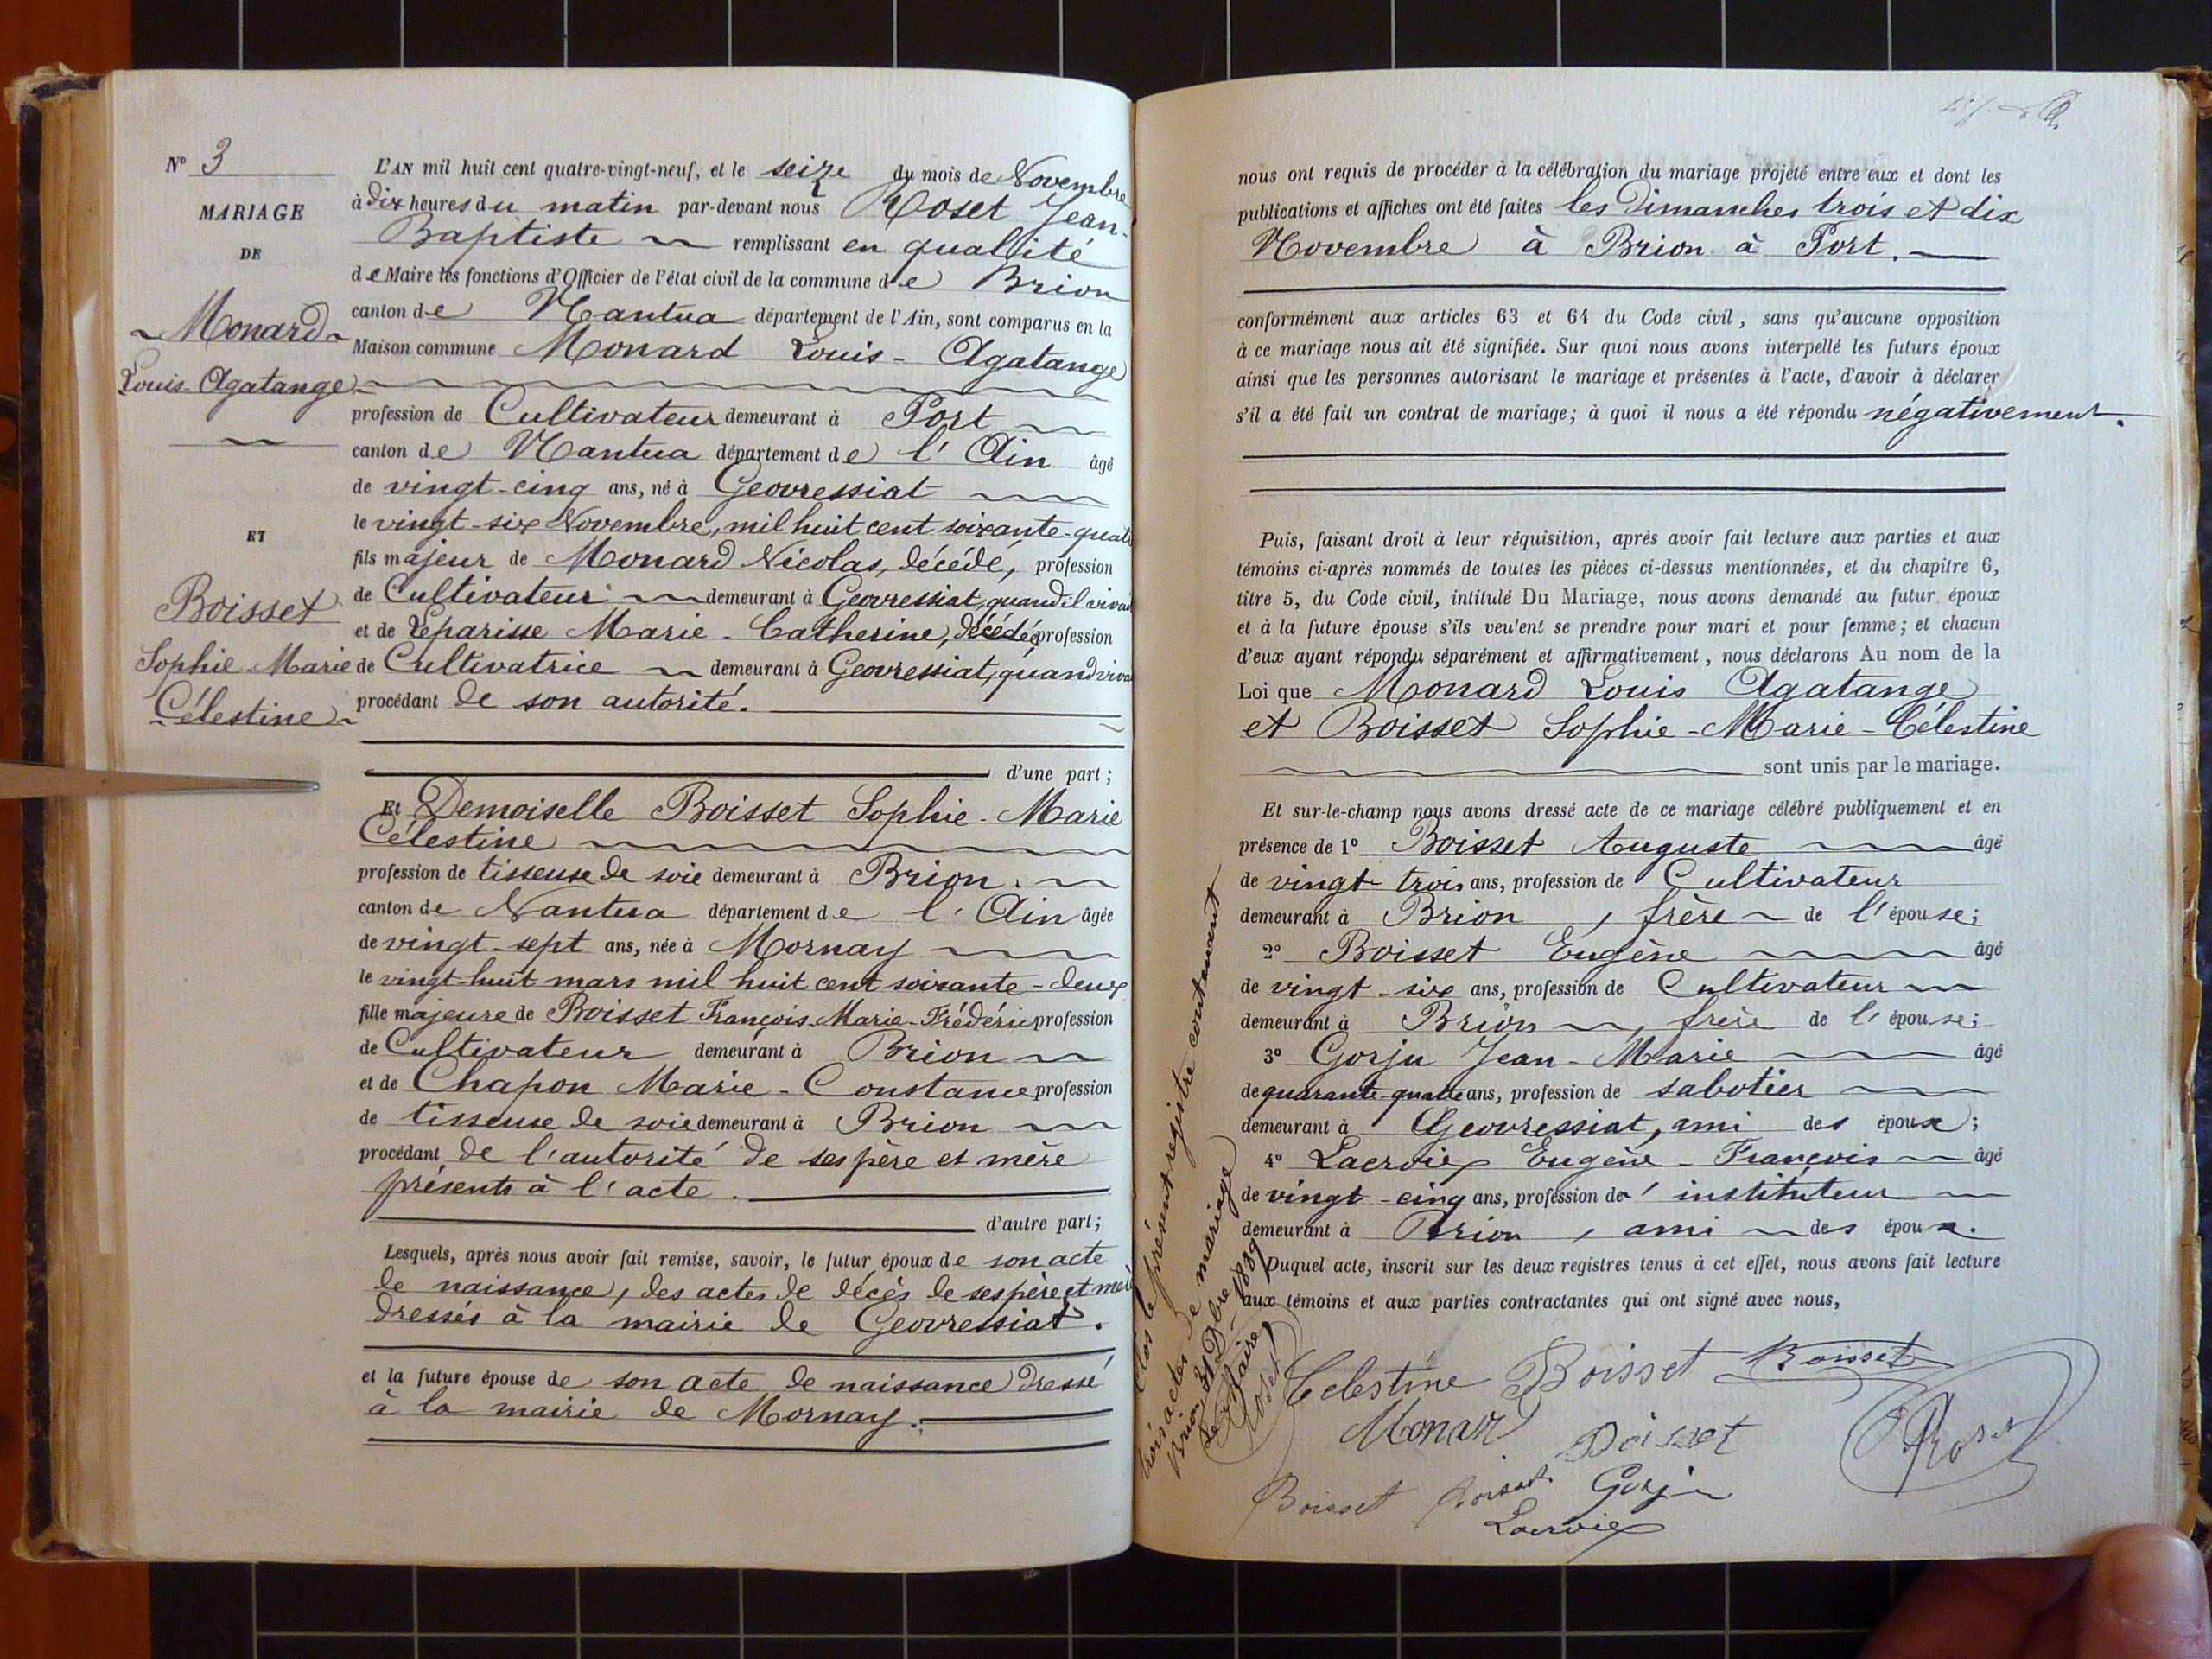 N° 3
MARIAGE
DE
Monard
Louis-Agatange
ET
Boisset
Sophie-Marie
Célestine
L'AN mil huit cent quatre-vingt-neuf, et le seize du mois de Novembre
à dix heures du matin par-devant nous Roset Jean-
Baptiste remplissant en quallité
de Maire les fonctions d'Officier de l'état civil de la commune de Brion
canton de Nantua département de l'Ain, sont comparus en la
Maison commune Monard Louis-Agatange
profession de Cultivateur demeurant à Port
canton de Nantua département de l'Ain âgé
de vingt-cinq ans, né à Geovressiat
le vingt-six Novembre, mil huit cent soixante-quat
fils majeur de Monard Nicolas, décédé, profession
de Cultivateur demeurant à Geovressiat, quand il vivait
et de Léparisse Marie-Catherine, décédée profession
de Cultivatrice demeurant à Geovressiat, quand viva
procédant de son autorité.
d'une part;
Et Demoiselle Boisset Sophie-Marie
Célestine
profession de tisseuse de soie demeurant à Brion.
canton de Nantua département de l'Ain âgée
de vingt-sept ans, née à Mornay
le vingt-huit mars mil huit cent soixante-deux
fille majeure de Boisset François-Marie-Frédéric profession
de Cultivateur demeurant à Brion
et de Chapon Marie-Constance profession
de tisseuse de soie demeurant à Brion
procédant de l'autorité de ses père et mère
présents à l'acte.
d'autre part;
Lesquels, après nous avoir fait remise, savoir, le futur époux de son acte
de naissance, des actes de décès de ses père et mère
dressés à la mairie de Geovressiat.
et la future épouse de son acte de naissance dressé
à la mairie de Mornay.
nous ont requis de procéder à la célébration du mariage projeté entre eux et dont les
publications et affiches ont été faites les Dimanches trois et dix
Novembre à Brion à Port.
conformément aux articles 63 et 64 du Code civil, sans qu'aucune opposition
à ce mariage nous ait été signifiée. Sur quoi nous avons interpellé les futurs époux
ainsi que les personnes autorisant le mariage et présentes à l'acte, d'avoir à déclarer
s'il a été fait un contrat de mariage; à quoi il nous a été répondu négativement.
Puis, faisant droit à leur réquisition, après avoir fait lecture aux parties et aux
témoins ci-après nommés de toutes les pièces ci-dessus mentionnées, et du chapitre 6,
titre 5, du Code civil, intitulé Du Mariage, nous avons demandé au futur époux
et à la future épouse s'ils veu'ent se prendre pour mari et pour femme; et chacun
d'eux ayant répondu séparément et affirmativement, nous déclarons Au nom de la
Loi que Monard Louis Agatange
et Boisset Sophie-Marie-Célestine
sont unis par le mariage.
Et sur-le-champ nous avons dressé acte de ce mariage célébré publiquement et en
présence de 1° Boisset Auguste âgé
de vingt-trois ans, profession de Cultivateur
demeurant à Brion, frère de l'épouse;
2° Boisset Eugène âgé
de vingt-six ans, profession de Cultivateur
demeurant à Brion, frère de l'épouse;
3° Gorju Jean-Marie âgé
de quarante-quatre ans, profession de sabotier
demeurant à Geovressiat, ami des époux;
4° Lacroix Eugène-François âgé
de vingt-cinq ans, profession de instituteur
demeurant à Brion, ami des époux.
Duquel acte, inscrit sur les deux registres tenus à cet effet, nous avons fait lecture
aux témoins et aux parties contractantes qui ont signé avec nous,
Celestine Boisset Boisset
Monard Boisset Roset
Boisset Boisset Gorju
Lacroix
Clos le présent registre contenant
trois actes de mariage
Brion 31 Dbre 1889
Le Maire
Roset